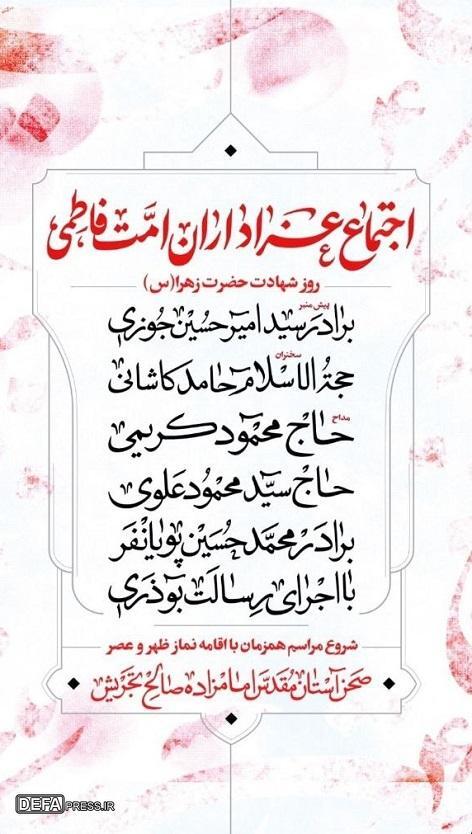 اجتماع عزاداران امت فاطمی
روز شهادت حضرت زهرا(س)
پیش منبر
برادر سید امیر حسین جوزی
سخنران
حجة الاسلام حامد کاشانی
مداح
حاج محمود کریمی
حاج سیّد محمود علوی
برادر محمّد حسین پویانفر
با اجرای رسالت بوذری
شروع مراسم همزمان با اقامه نماز ظهر و عصر
صحن آستان مقدس امامزاده صالح تجریش
DEFAPRESS.IR